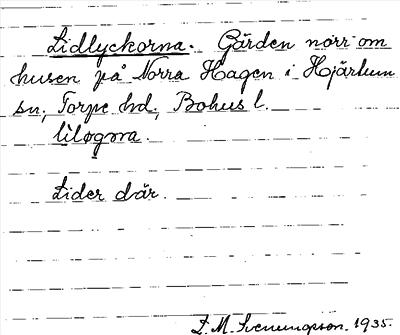 Lidlyckorna. Gärden norr om
husen på Norra Hagen i Hjärtum
sn, Torpe hd, Bohus l.
Lider där.
L. M. Svenungsson. 1935.